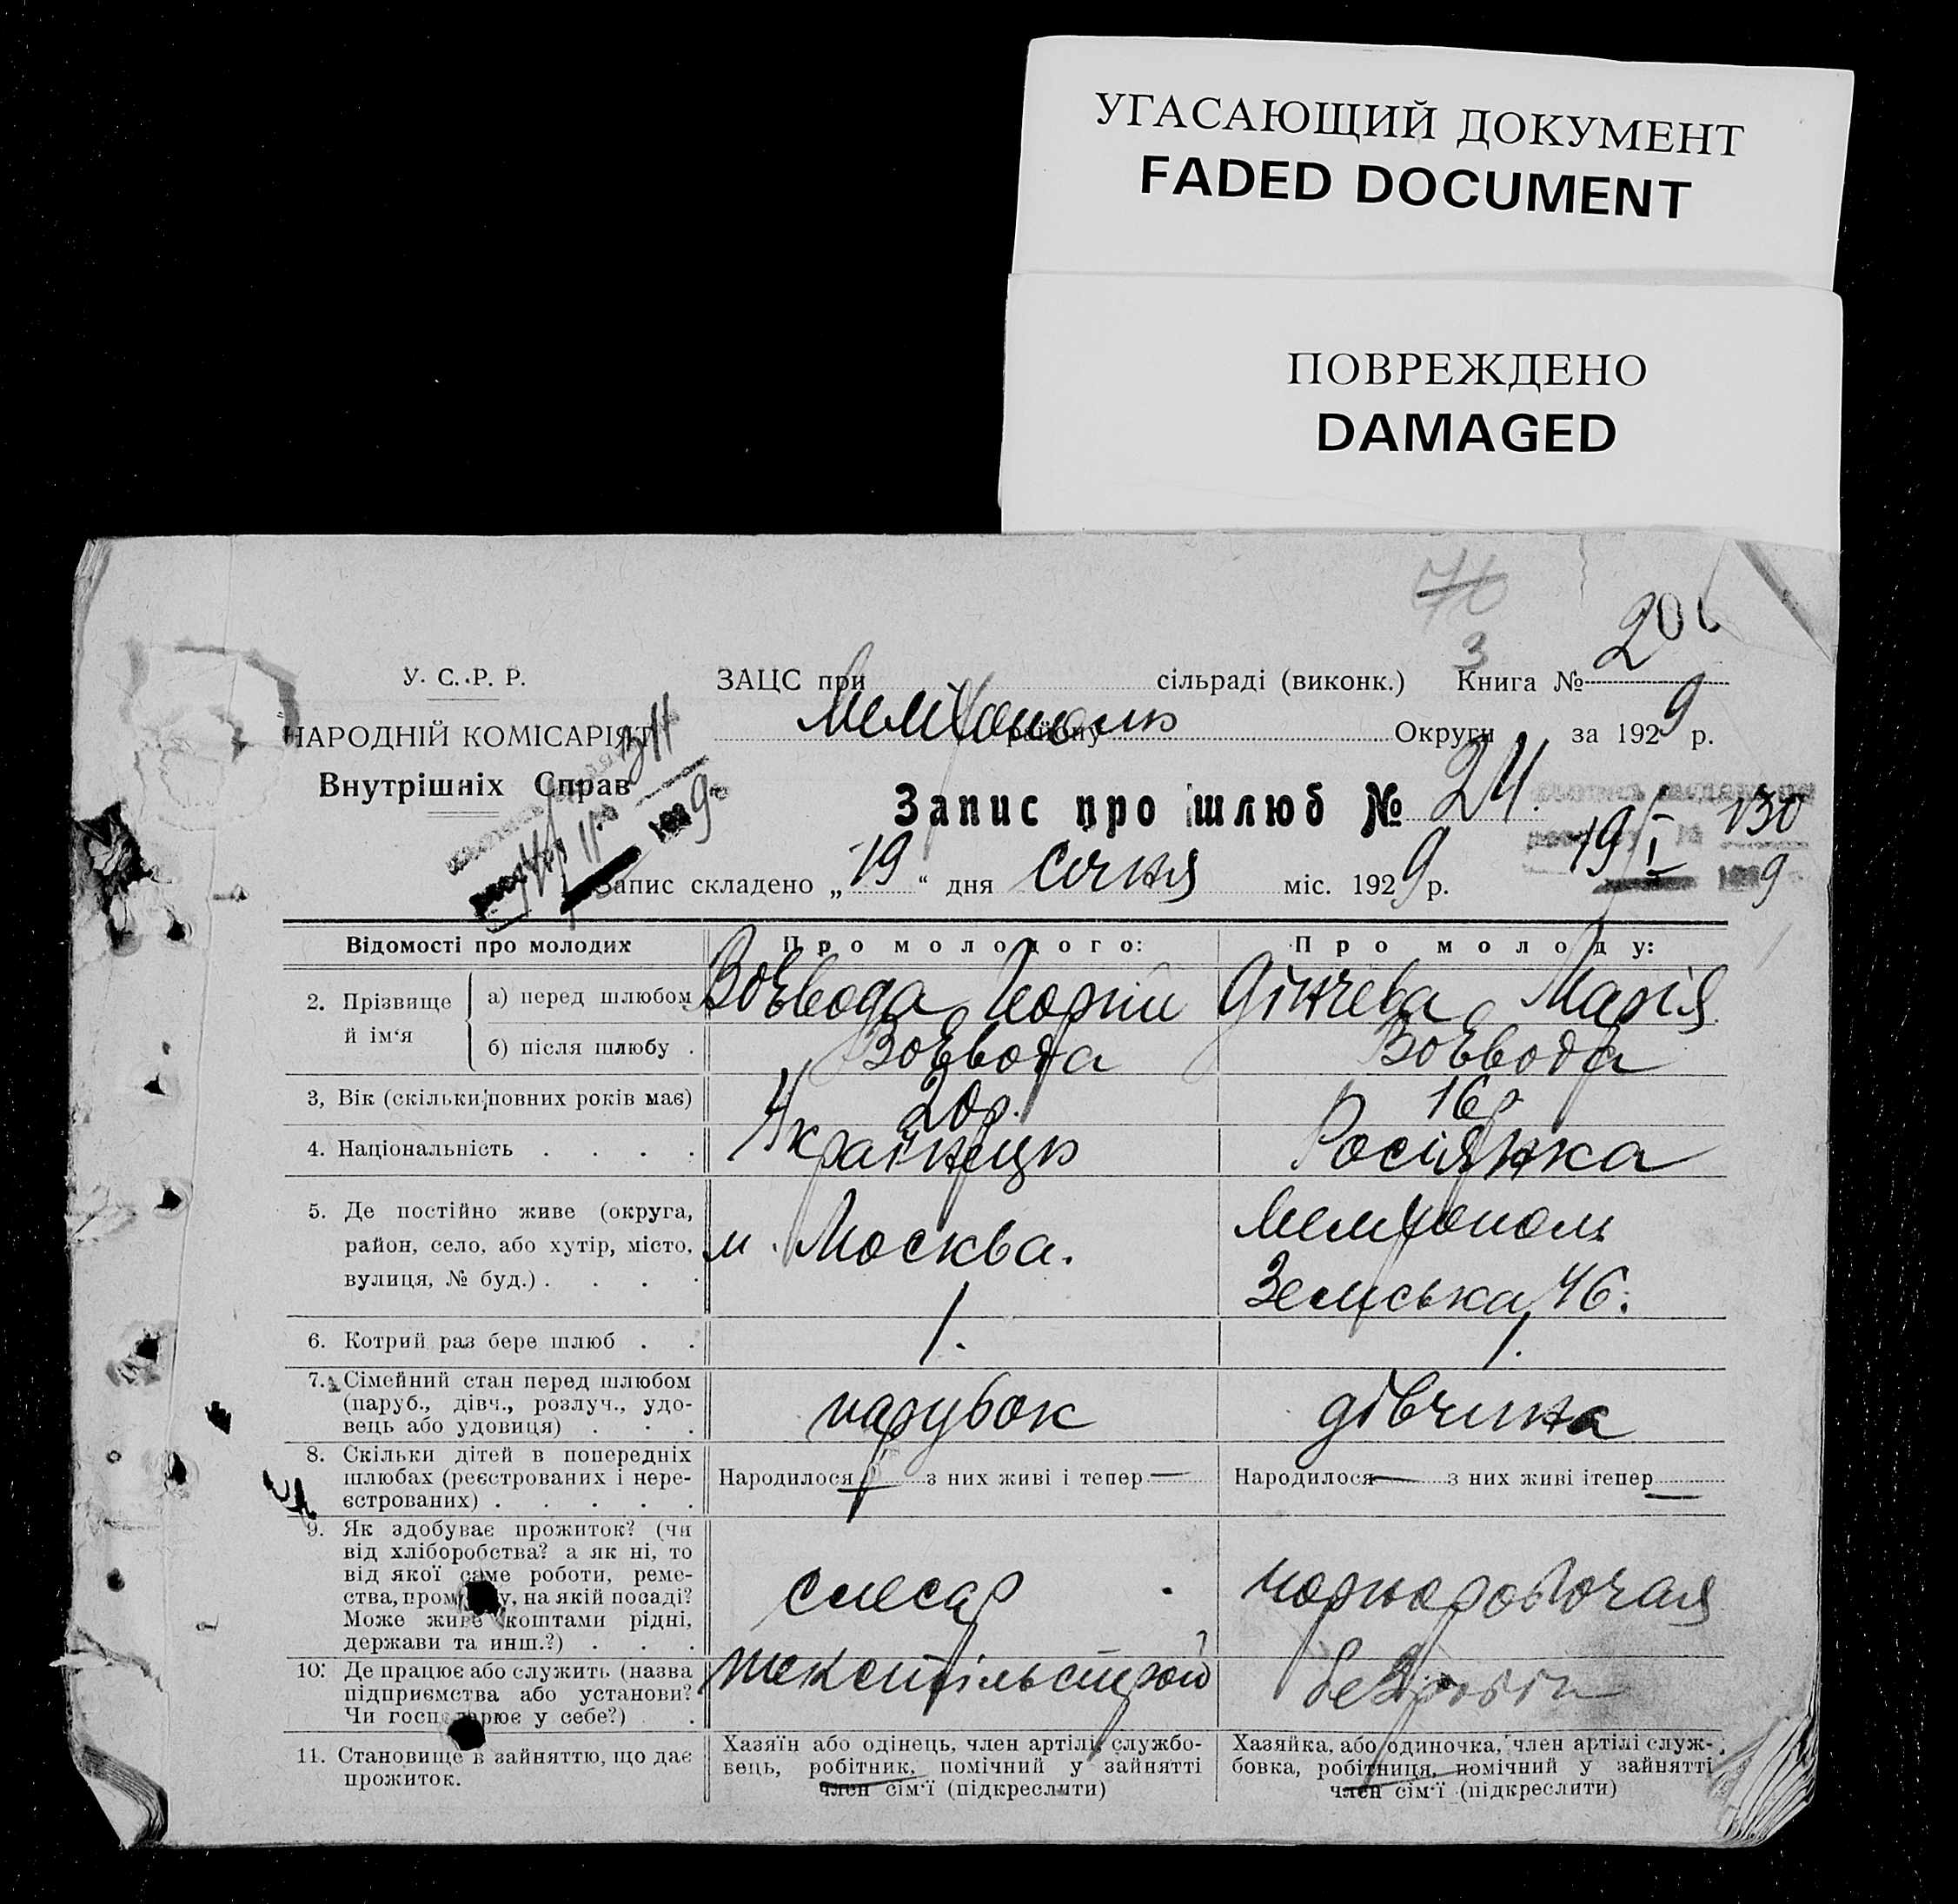 УГАСАЮЩИЙ ДОКУМЕНТ
FADED DOCUMENT
ПОВРЕЖДЕНО
DAMAGED
3
20
У. С. Р. Р.
НАРОДНІЙ КОМІСАРІЯТ
Внутрішніх Справ
ЗАЦС при сільраді (виконк.) Книга №
району Округи за 1929 р.
Запис про шлюб № 24.
130
19/I
9
Запис складено „19“ дня січня міс. 1929 р.
Відомості про молодих
Про молодого:
Про молоду:
2. Прізвище й ім‘я
а) перед шлюбом
Воєвода
Дінчева Марія
б) після шлюбу .
Воєвода
Воєвода
3, Вік (скільки повних років має)
20 р.
16 р.
4. Національність . . . .
Українець
Росіянка
5. Де постійно живе (округа,
район, село, або хутір, місто,
вулиця, № буд.) . . . .
м. Москва.
Мелітополь
Земська, 46.
6. Котрий раз бере шлюб . .
1.
1.
7. Сімейний стан перед шлюбом
(паруб., дівч., розлуч., удо-
вець або удовиця) . . .
парубок
дівчина
8. Скільки дітей в попередніх
шлюбах (реєстрованих і нере-
єстрованих) . . . . .
Народилося — з них живі і тепер —
Народилося — з них живі ітепер —
9. Як здобуває прожиток? (чи
від хліборобства? а як ні, то
від якої саме роботи, реме-
ства, на якій посаді?
Може живе коштами рідні,
держави та инш.?) . . .
слесар
чорноробочая
10. Де працює або служить (назва
підприємства або установи?
Чи господарює у себе?) .
текстільстрой
безробітн
11. Становище в зайняттю, що дає
прожиток.
Хазяїн або одінець, член артілі, службо-
вець, робітник, помічний у зайнятті
член сім‘ї (підкреслити)
Хазяйка, або одиночка, член артілі служ-
бовка, робітниця, помічний у зайнятті
член сім‘ї (підкреслити)